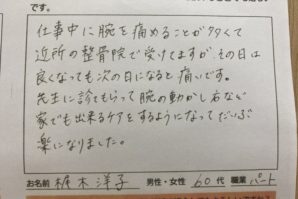 です。
仕事中に腕を痛めることが多くて
近所の整骨院で受けてますが、その日は
良くなっても次の日になると痛いです。
先生に診てもらって腕の動かし方など
家でも出来るケアをするようになってだいぶ
楽になりました。
お名前 梶木洋子 男性・女性 60代 職業 パート